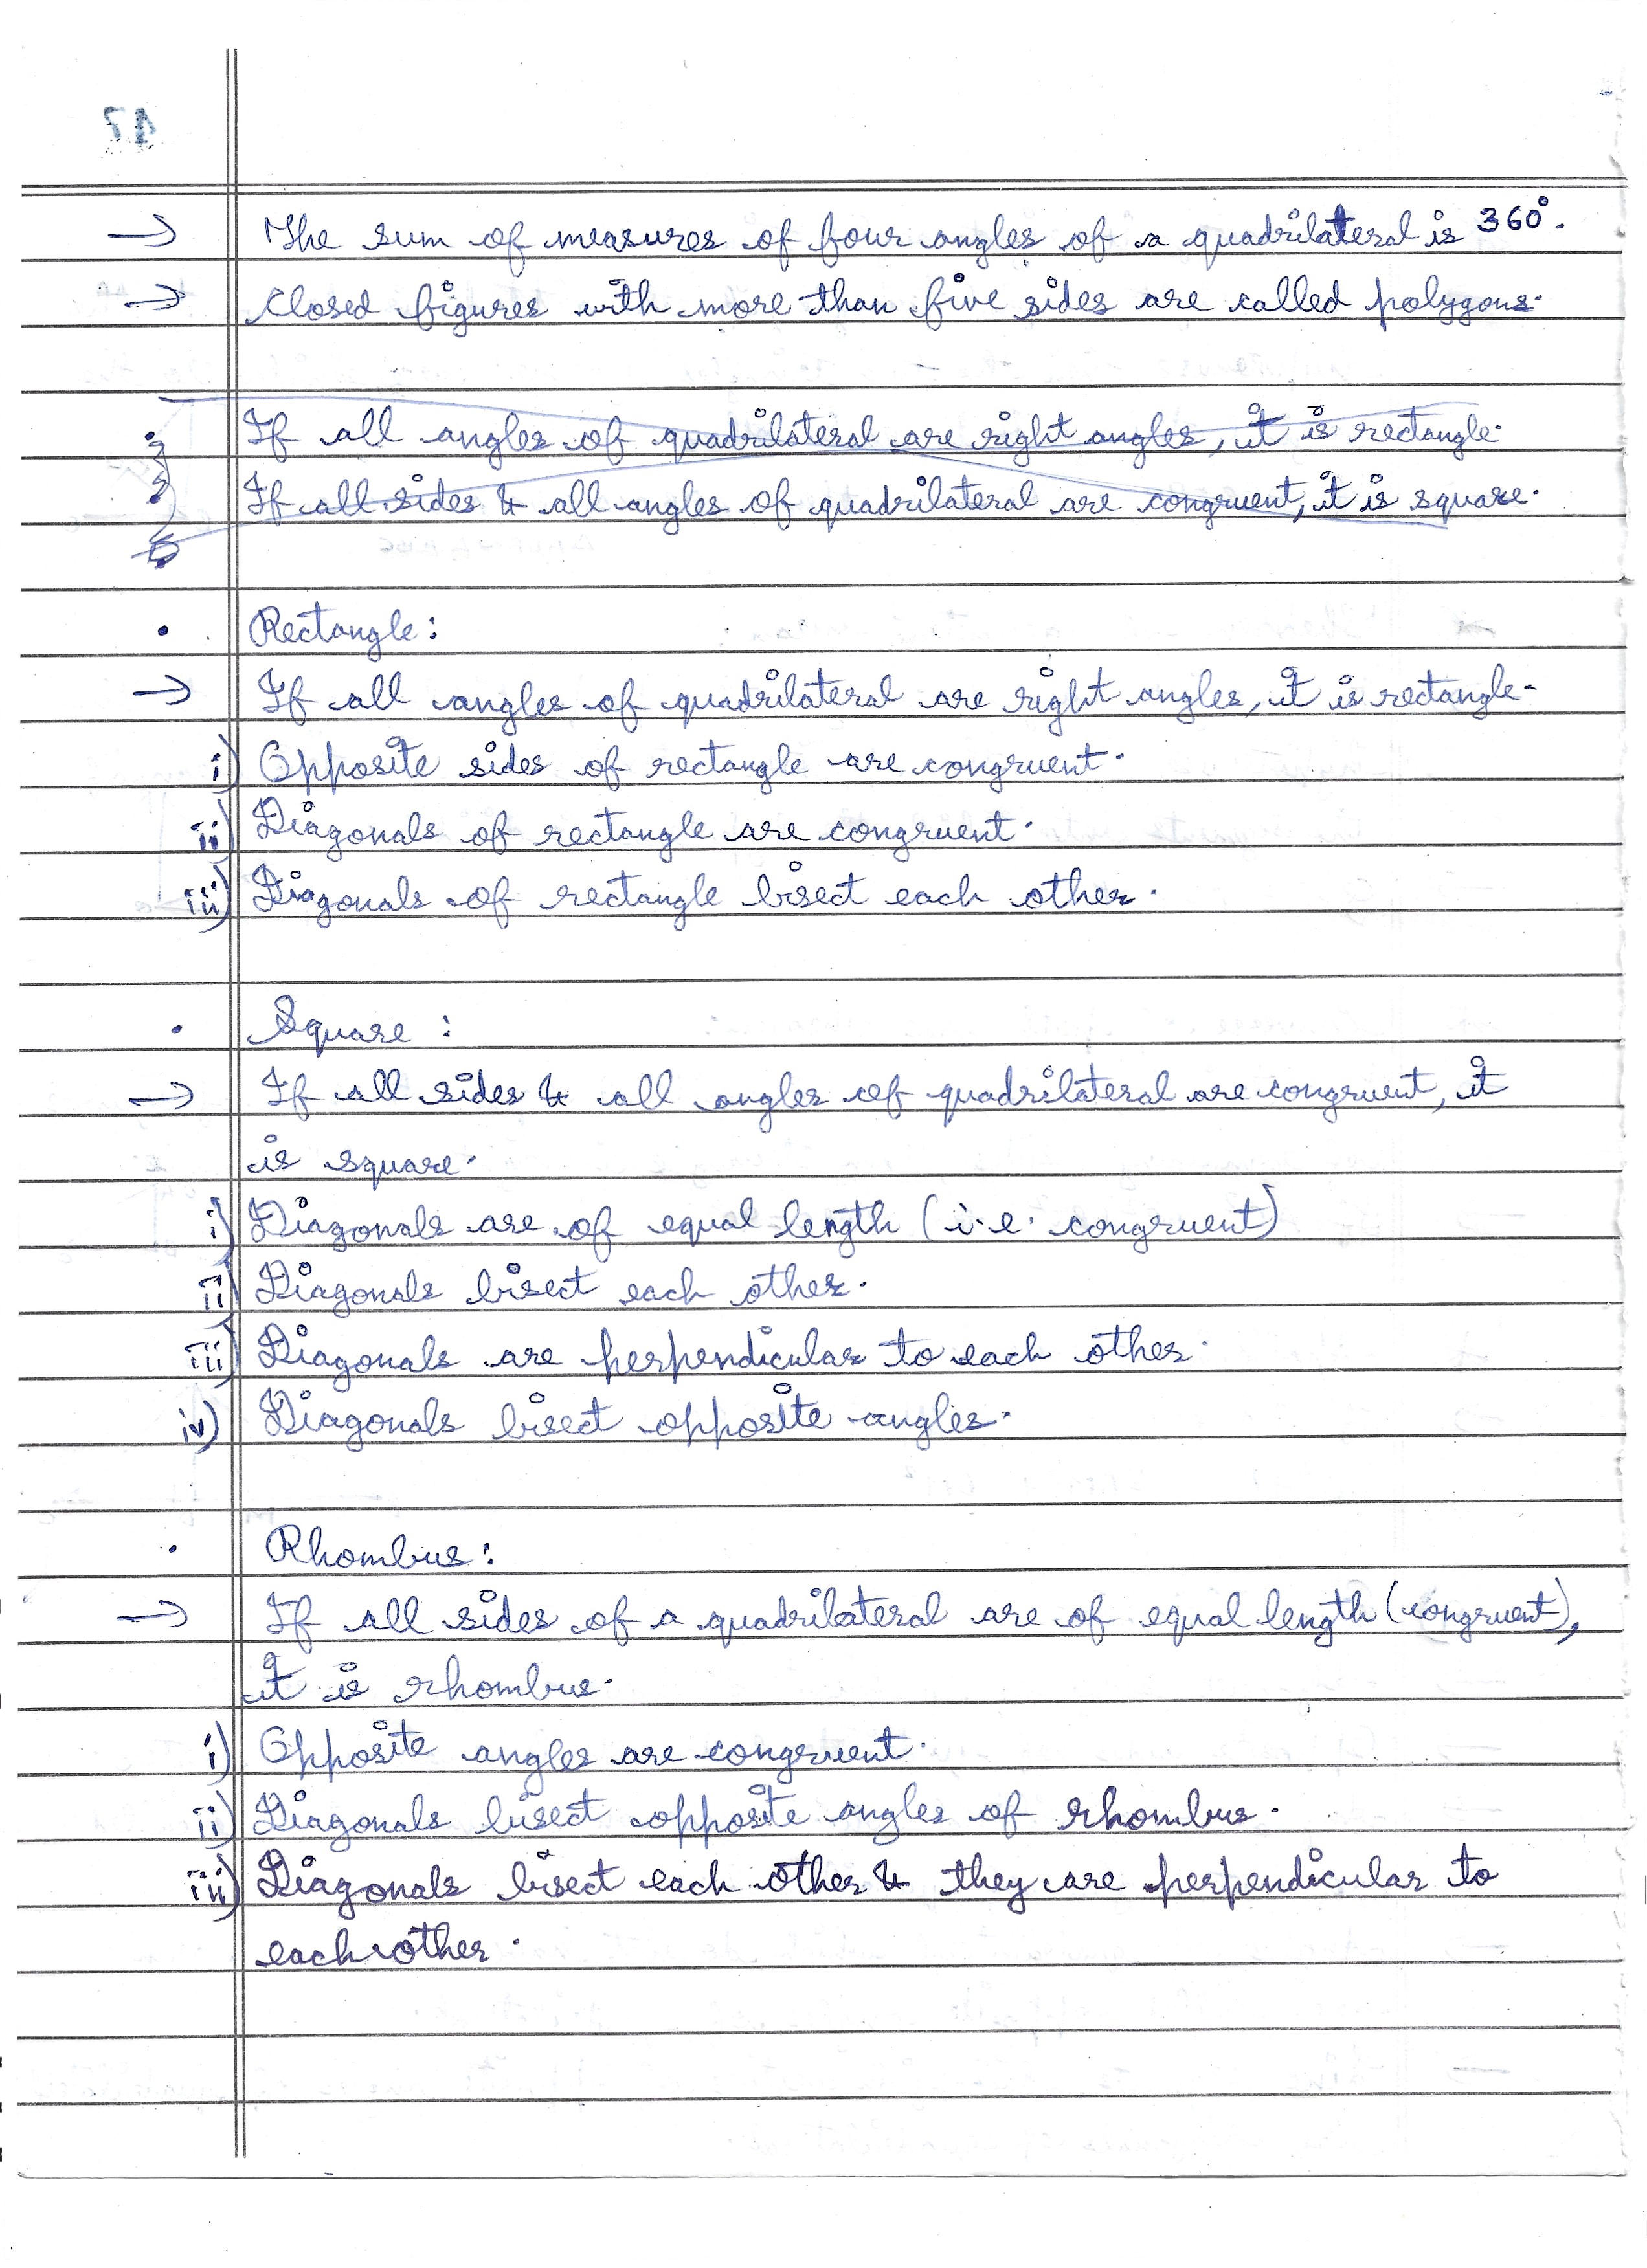 → The sum of measures of four angles of a quadrilateral is 360°.
→ Closed figures with more than five sides are called polygons.
If all angles of quadrilateral are right angles, it is rectangle.
If all sides & all angles of quadrilateral are congruent, it is square.
• Rectangle:
→ If all angles of quadrilateral are right angles, it is rectangle.
i) Opposite sides of rectangle are congruent.
ii) Diagonals of rectangle are congruent.
iii) Diagonals of rectangle bisect each other.
• Square :
→ If all sides & all angles of quadrilateral are congruent, it
is square.
i) Diagonals are of equal length (i.e. congruent)
ii) Diagonals bisect each other.
iii) Diagonals are perpendicular to each other.
iv) Diagonals bisect opposite angles.
• Rhombus:
→ If all sides of a quadrilateral are of equal length (congruent),
it is rhombus.
i) Opposite angles are congruent.
ii) Diagonals bisect opposite angles of rhombus.
iii) Diagonals bisect each other & they are perpendicular to
each other.